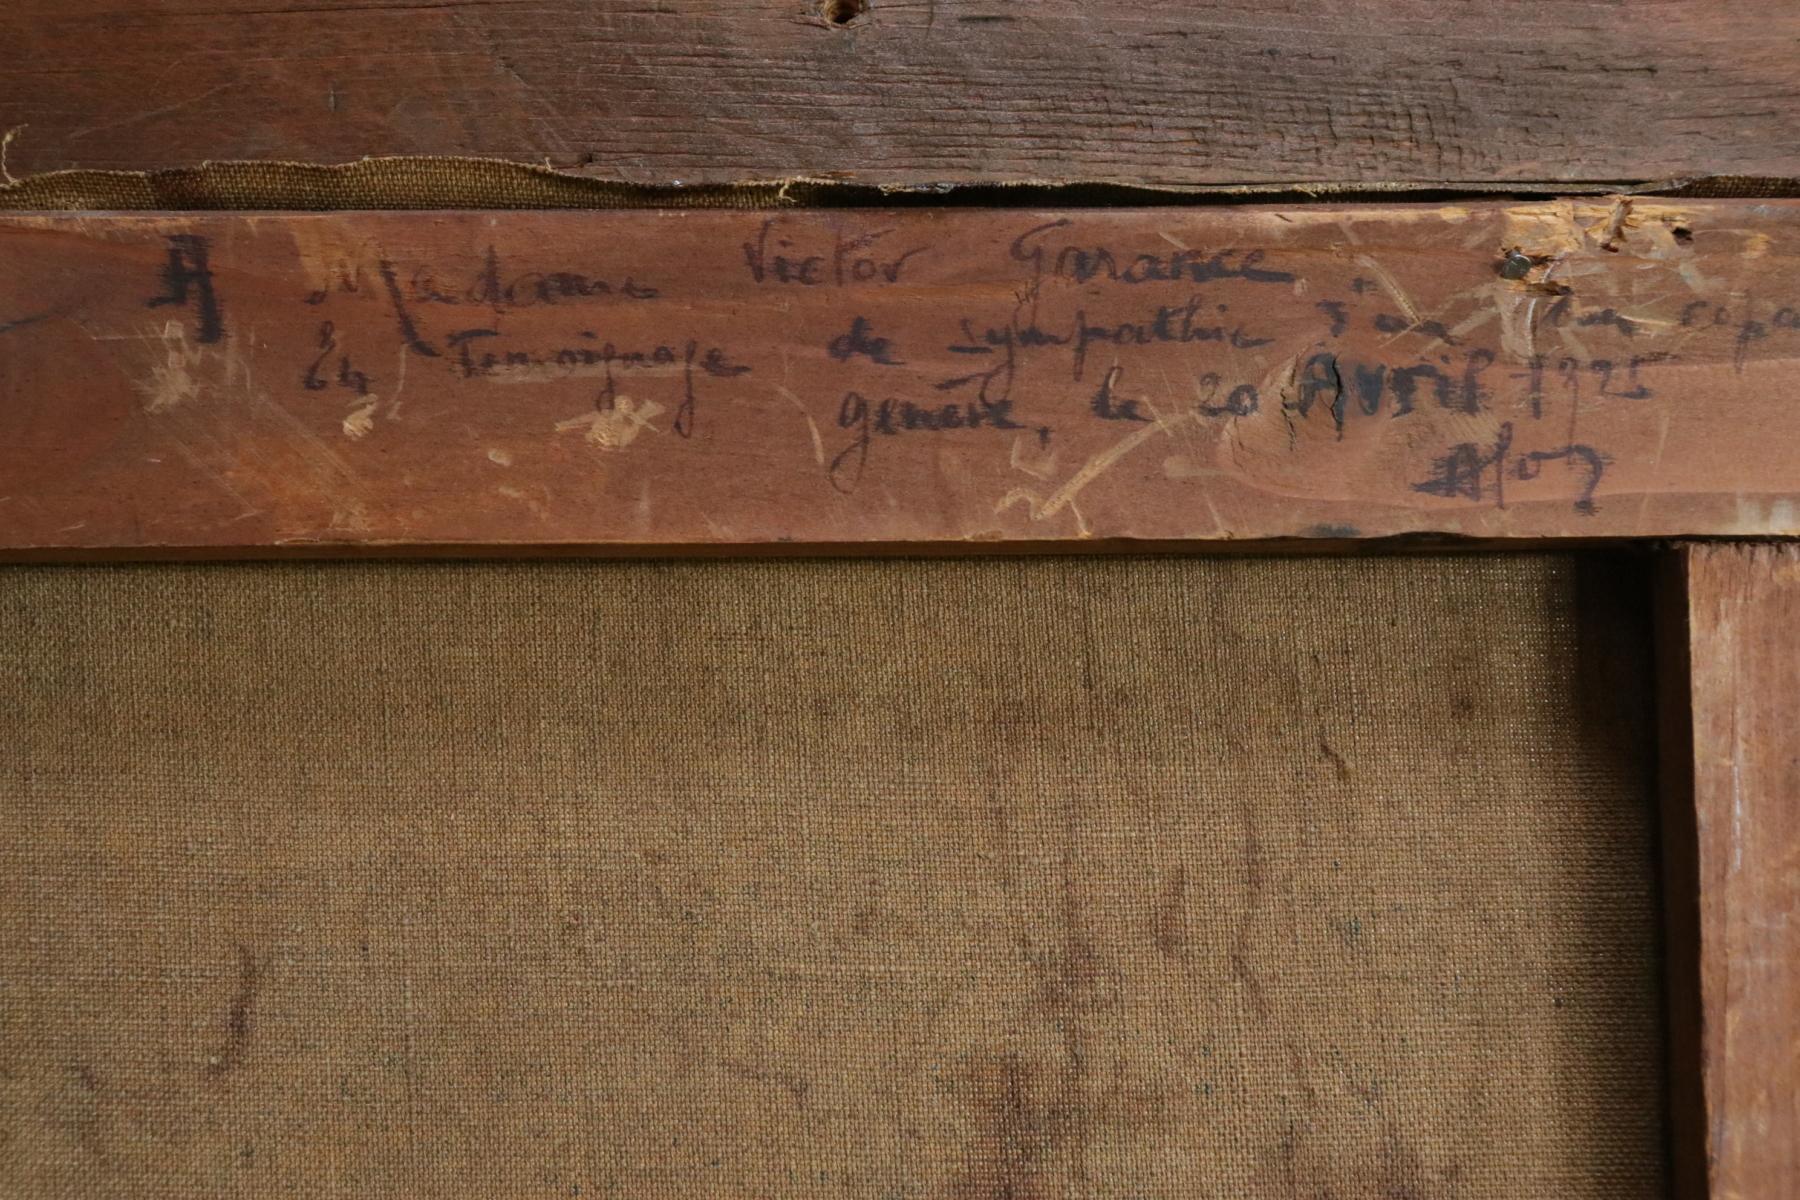 A Madame Victor Garance
Temoignage de Sympathie
genève, le 20 Avril 1925